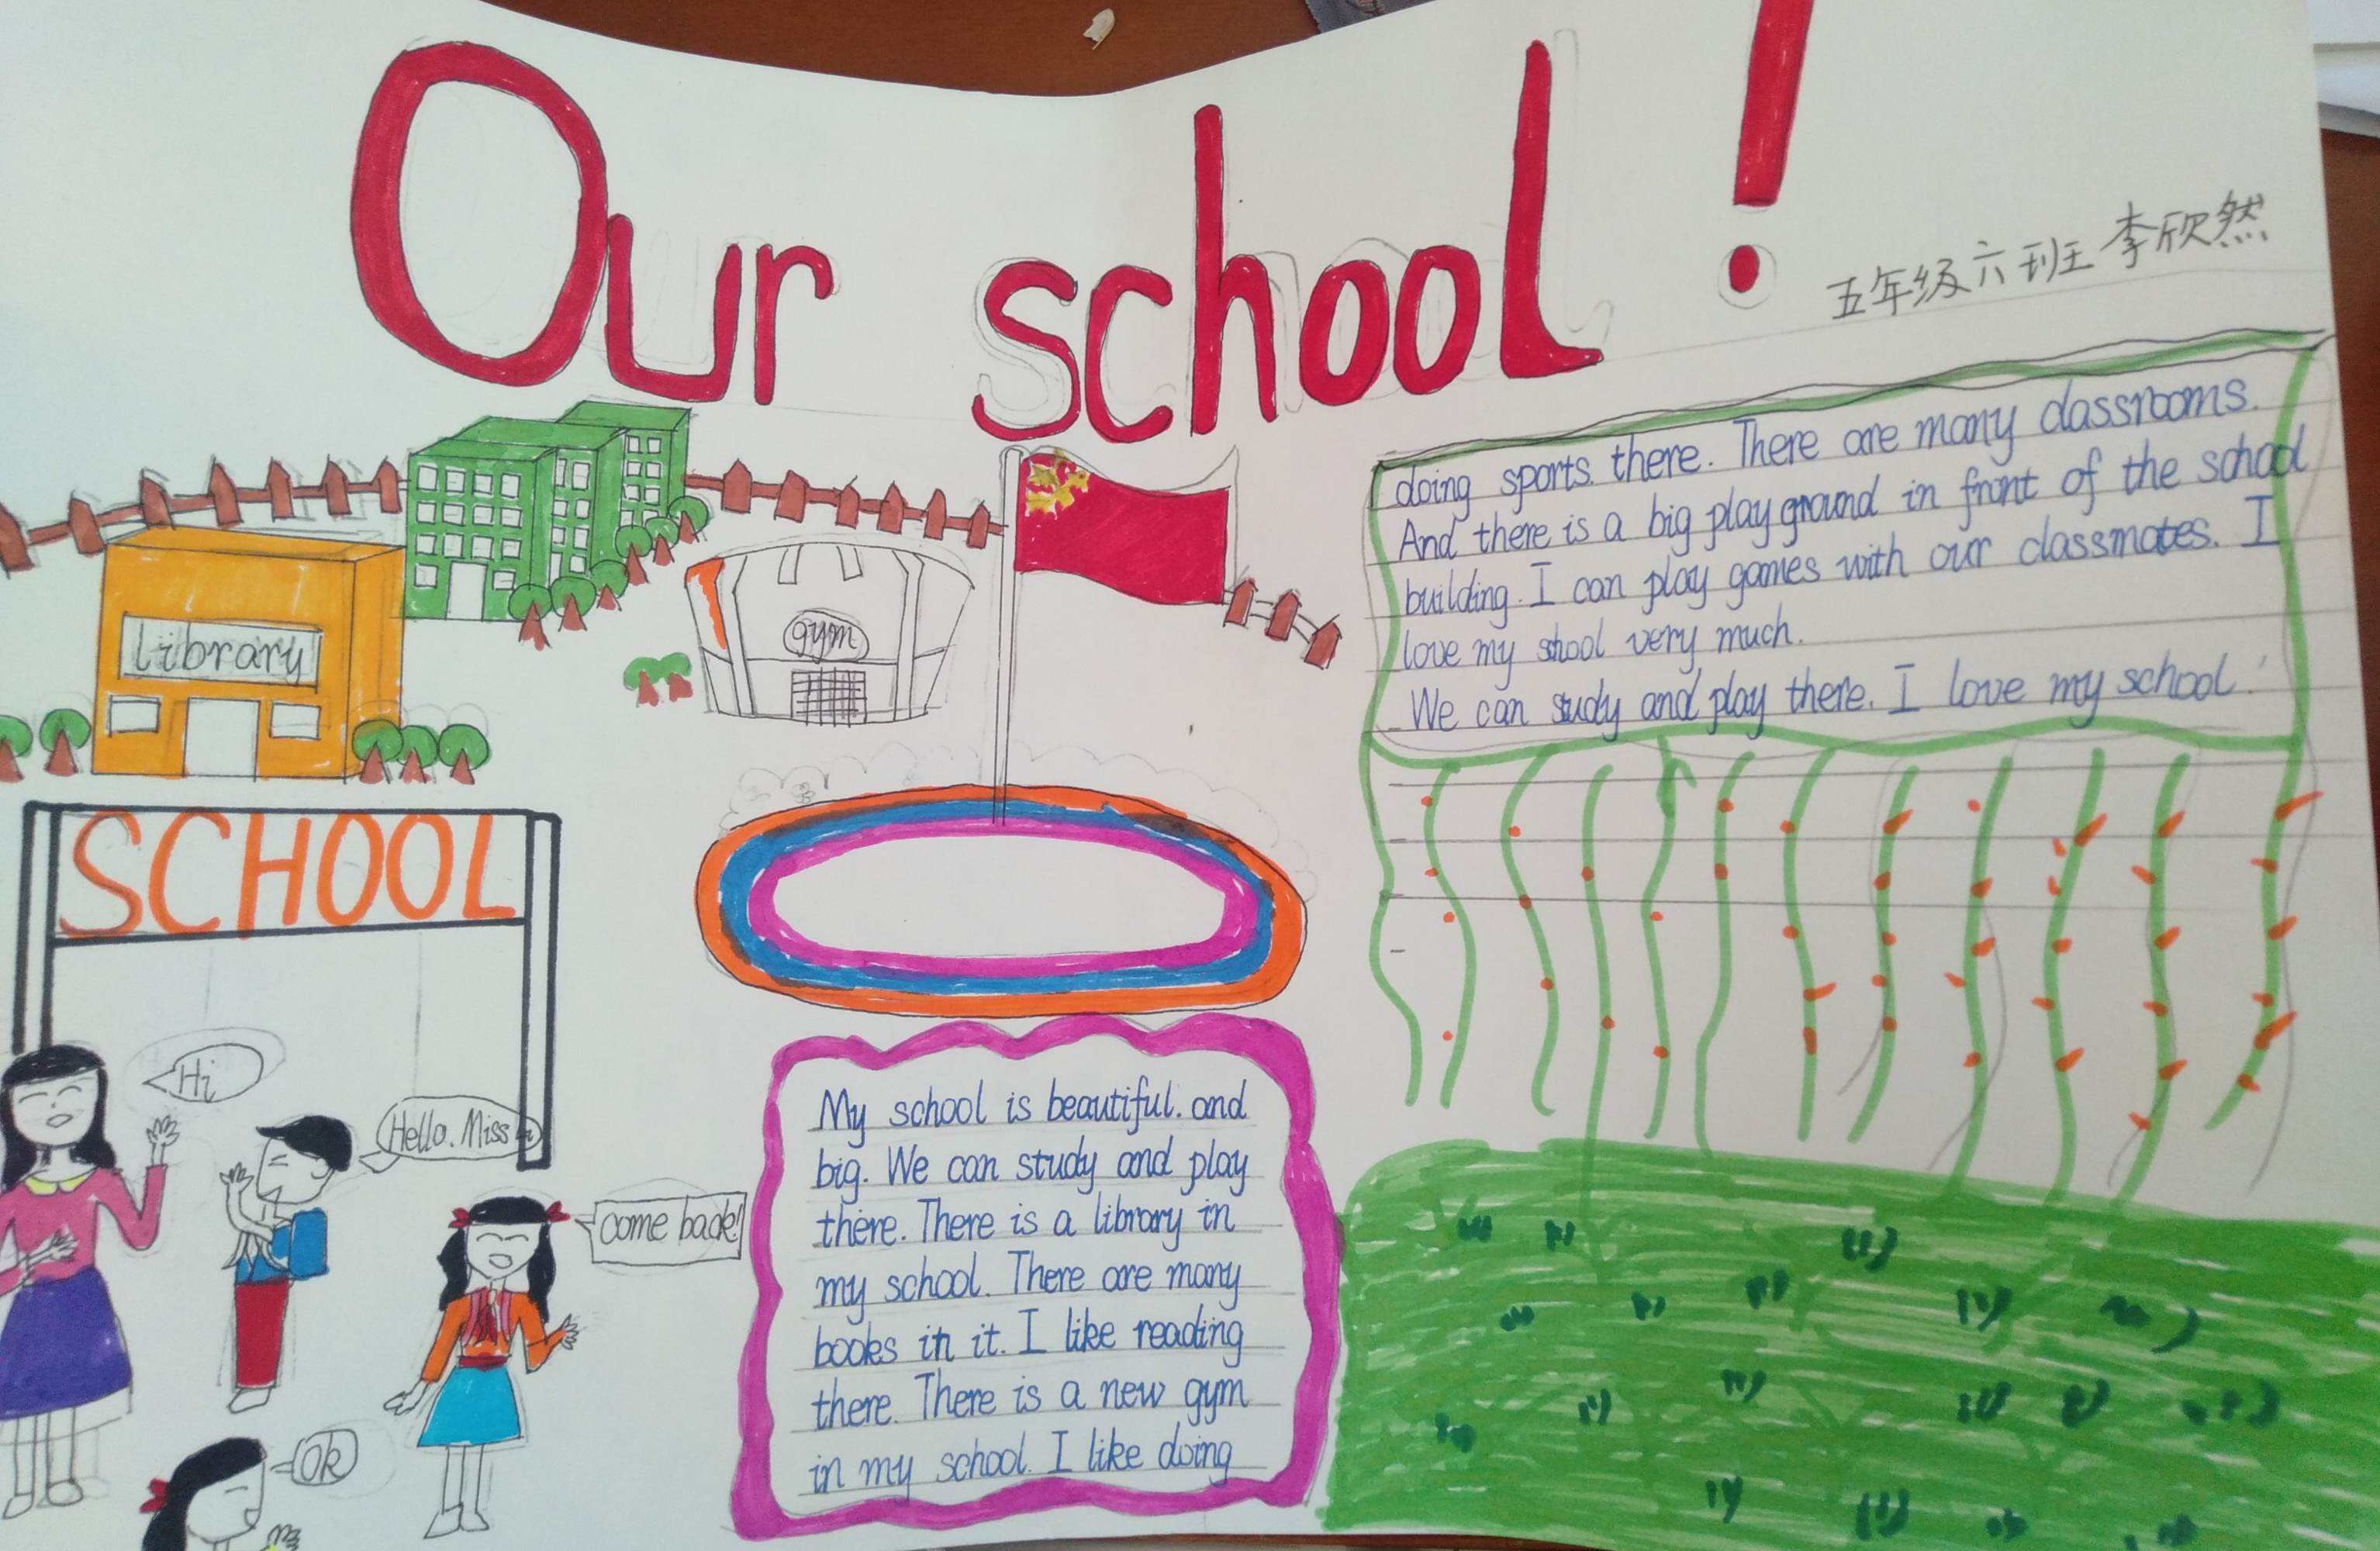 Our school!
五年级六班李欣然
library
gym
SCHOOL
Hi
Hello. Miss Li
come back!
Ok
My school is beautiful. and
big. We can study and play
there. There is a library in
my school. There are many
books in it. I like reading
there. There is a new gym
in my school. I like doing
doing sports there. There are many classrooms.
And there is a big playground in front of the school
building. I can play games with our classmates. I
love my shool very much.
We can study and play there. I love my school!